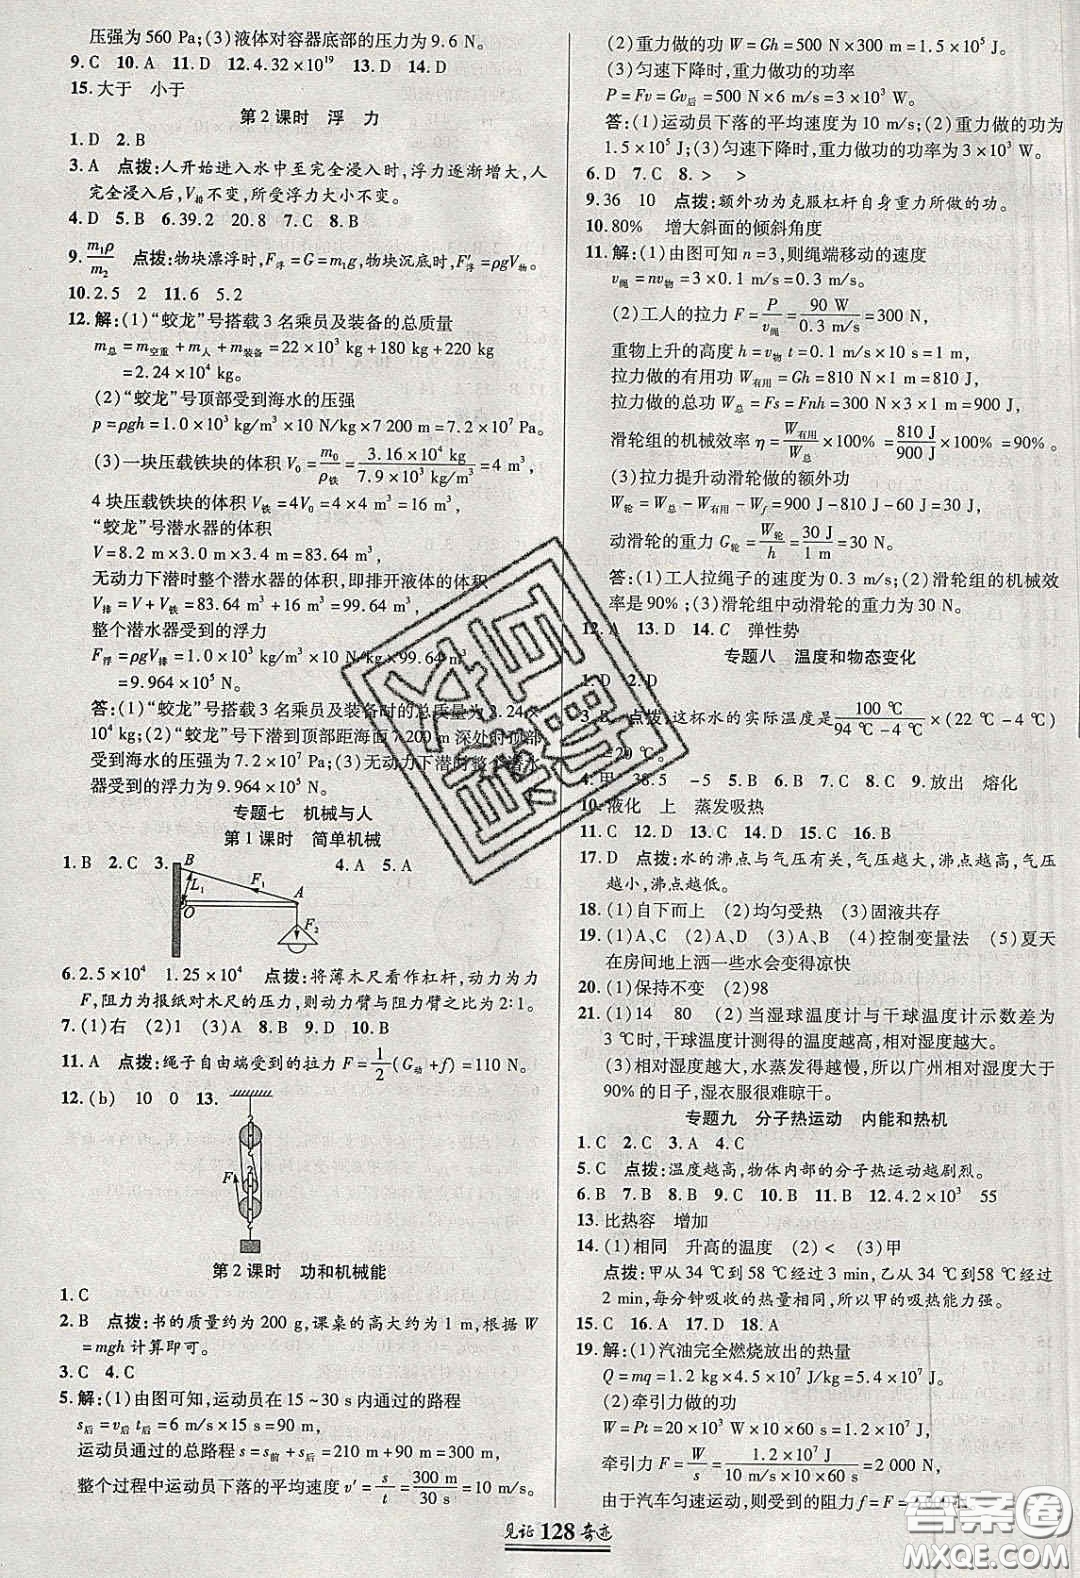 压强为 560 Pa;(3)液体对容器底部的压力为 9.6 N。
9. C 10. A 11. D 12. 4.32×10¹⁹ 13. D 14. D
15. 大于 小于
第2课时 浮 力
1. D 2. B
3. A 点拨:人开始进入水中至完全浸入时,浮力逐渐增大,人
完全浸入后,V排不变,所受浮力大小不变。
4. D 5. B 6. 39.2 20.8 7. C 8. B
9. m₁ρ/m₂ 点拨:物块漂浮时,F浮=G=m₁g,物块沉底时,F′浮=ρgV物。
10. 2.5 2 11. 6 5.2
12. 解:(1)“蛟龙”号搭载3名乘员及装备的总质量
m总=m空重+m人+m装备=22×10³ kg+180 kg+220 kg
=2.24×10⁴ kg。
(2)“蛟龙”号顶部受到海水的压强
p=ρgh=1.0×10³ kg/m³×10 N/kg×7 200 m=7.2×10⁷ Pa。
(3)一块压载铁块的体积 V₀=m₀/ρ铁=3.16×10⁴ kg/7.9×10³ kg/m³=4 m³,
4 块压载铁块的体积 V铁=4V₀=4×4 m³=16 m³,
“蛟龙”号潜水器的体积
V=8.2 m×3.0 m×3.4 m=83.64 m³,
无动力下潜时整个潜水器的体积,即排开液体的体积
V排=V+V铁=83.64 m³+16 m³=99.64 m³,
整个潜水器受到的浮力
F浮=ρgV排=1.0×10³ kg/m³×10 N/kg×99.64 m³
=9.964×10⁵ N。
答:(1)“蛟龙”号搭载3名乘员及装备时的总质量为2.24×
10⁴ kg;(2)“蛟龙”号下潜到顶部距海面7 200 m深处时顶部
受到海水的压强为7.2×10⁷ Pa;(3)无动力下潜时整个潜水
器受到的浮力为9.964×10⁵ N。
专题七 机械与人
第1课时 简单机械
1. B 2. C 3. 4. A 5. A
B
L₁
F₁
A
O
F₂
6. 2.5×10⁴ 1.25×10⁴ 点拨:将薄木尺看作杠杆,动力为力
F,阻力为报纸对木尺的压力,则动力臂与阻力臂之比为2∶1。
7. (1)右 (2)1 (3)A 8. B 9. D 10. B
11. A 点拨:绳子自由端受到的拉力 F=1/2(G动+f)=110 N。
12. (b) 10 0 13.
F
第2课时 功和机械能
1. C
2. B 点拨:书的质量约为 200 g,课桌的高大约为 1 m,根据 W
=mgh 计算即可。
3. C 4. C
5. 解:(1)由图可知,运动员在 15~30 s 内通过的路程
s后=v后t=6 m/s×15 s=90 m,
运动员通过的总路程 s=s前+s后=210 m+90 m=300 m,
整个过程中运动员下落的平均速度 v′=s/t=300 m/30 s=10 m/s。
(2)重力做的功 W=Gh=500 N×300 m=1.5×10⁵ J。
(3)匀速下降时,重力做功的功率
P=Fv=Gv后=500 N×6 m/s=3×10³ W。
答:(1)运动员下落的平均速度为 10 m/s;(2)重力做的功为
1.5×10⁵ J;(3)匀速下降时,重力做功的功率为 3×10³ W。
6. D 7. C 8. > >
9. 36 10 点拨:额外功为克服杠杆自身重力所做的功。
10. 80% 增大斜面的倾斜角度
11. 解:(1)由图可知 n=3,则绳端移动的速度
v绳=nv物=3×0.1 m/s=0.3 m/s。
(2)工人的拉力 F=P/v绳=90 W/0.3 m/s=300 N,
重物上升的高度 h=v物t=0.1 m/s×10 s=1 m,
拉力做的有用功 W有用=Gh=810 N×1 m=810 J,
拉力做的总功 W总=Fs=Fnh=300 N×3×1 m=900 J,
滑轮组的机械效率 η=W有用/W总×100%=810 J/900 J×100%=90%。
(3)拉力提升动滑轮做的额外功
W轮=W总-W有用-Wf=900 J-810 J-60 J=30 J,
动滑轮的重力 G轮=W轮/h=30 J/1 m=30 N。
答:(1)工人拉绳子的速度为 0.3 m/s;(2)滑轮组的机械效
率是 90%;(3)滑轮组中动滑轮的重力为 30 N。
12. A 13. D 14. C 弹性势
专题八 温度和物态变化
1. D 2. D
3. B 点拨:这杯水的实际温度是100 ℃/94 ℃-4 ℃×(22 ℃-4 ℃)
=20 ℃。
4. 甲 38.5 -5 5. B 6. D 7. C 8. C 9. 放出 熔化
10. 液化 上 蒸发吸热
11. C 12. C 13. C 14. D 15. C 16. B
17. D 点拨:水的沸点与气压有关,气压越大,沸点越高,气压
越小,沸点越低。
18. (1)自下而上 (2)均匀受热 (3)固液共存
19. (1)A、C (2)A、D (3)A、B (4)控制变量法 (5)夏天
在房间地上洒一些水会变得凉快
20. (1)保持不变 (2)98
21. (1)14 80 (2)当湿球温度计与干球温度计示数差为
3 ℃时,干球温度计测得的温度越高,相对湿度越大。
(3)相对湿度越大,水蒸发得越慢,所以广州相对湿度大于
90%的日子,湿衣服很难晾干。
专题九 分子热运动 内能和热机
1. C 2. C 3. A 4. C
5. C 点拨:温度越高,物体内部的分子热运动越剧烈。
6. B 7. B 8. B 9. C 10. C 11. B 12. 4.2×10³ 55
13. 比热容 增加
14. (1)相同 升高的温度 (2)< (3)甲
点拨:甲从 34 ℃到 58 ℃经过 3 min,乙从 34 ℃到58 ℃经过
2 min,每分钟吸收的热量相同,所以甲的吸热能力强。
15. C 16. A 17. D 18. A
19. 解:(1)汽油完全燃烧放出的热量
Q=mq=1.2 kg×4.5×10⁷ J/kg=5.4×10⁷ J。
(2)牵引力做的功
W=Pt=20×10³ W×10×60 s=1.2×10⁷ J,
牵引力 F=W/s=1.2×10⁷ J/10 m/s×10×60 s=2 000 N,
由于汽车匀速运动,则受到的阻力 f=F=2 000 N。
见证128奇迹
答案圈
MXQE.COM